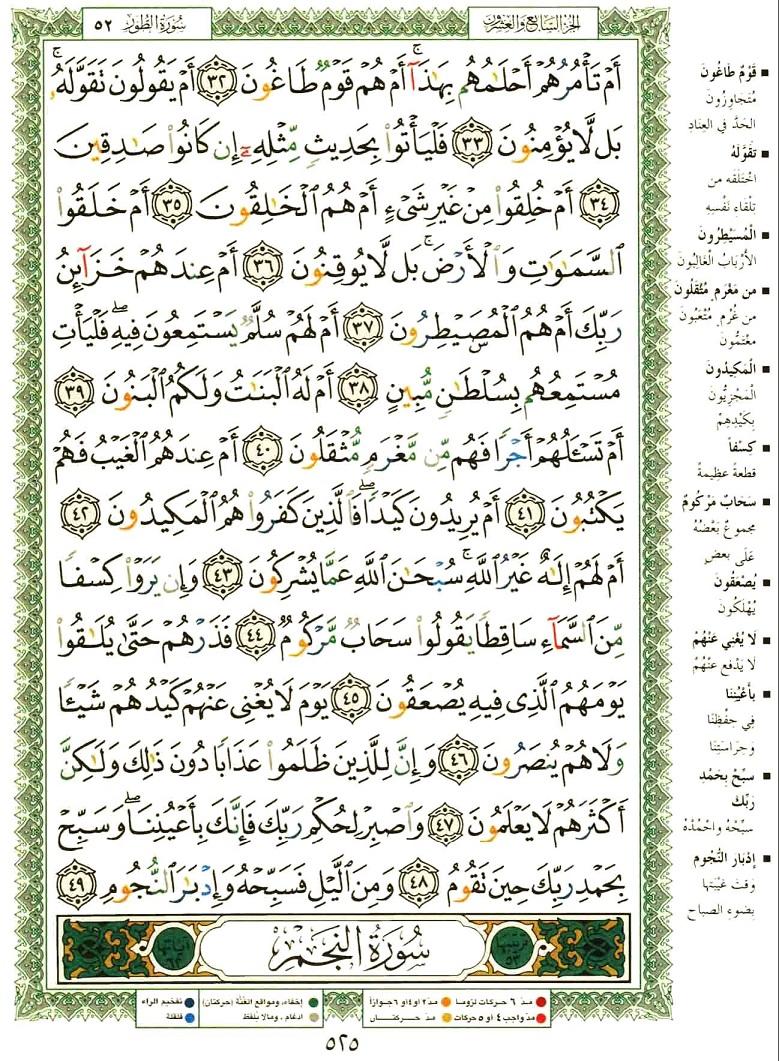 سُورَةُ الطُّورِ ٥٢
الجزء السابع والعشرون
أَمْ تَأْمُرُهُمْ أَحْلَٰمُهُم بِهَٰذَآ ۚ أَمْ هُمْ قَوْمٌ طَاغُونَ ٣٢ أَمْ يَقُولُونَ تَقَوَّلَهُۥ ۚ
بَل لَّا يُؤْمِنُونَ ٣٣ فَلْيَأْتُوا۟ بِحَدِيثٍ مِّثْلِهِۦٓ إِن كَانُوا۟ صَٰدِقِينَ
٣٤ أَمْ خُلِقُوا۟ مِنْ غَيْرِ شَىْءٍ أَمْ هُمُ ٱلْخَٰلِقُونَ ٣٥ أَمْ خَلَقُوا۟
ٱلسَّمَٰوَٰتِ وَٱلْأَرْضَ ۚ بَل لَّا يُوقِنُونَ ٣٦ أَمْ عِندَهُمْ خَزَآئِنُ
رَبِّكَ أَمْ هُمُ ٱلْمُصَۣيْطِرُونَ ٣٧ أَمْ لَهُمْ سُلَّمٌ يَسْتَمِعُونَ فِيهِ ۖ فَلْيَأْتِ
مُسْتَمِعُهُم بِسُلْطَٰنٍ مُّبِينٍ ٣٨ أَمْ لَهُ ٱلْبَنَٰتُ وَلَكُمُ ٱلْبَنُونَ ٣٩
أَمْ تَسْـَٔلُهُمْ أَجْرًا فَهُم مِّن مَّغْرَمٍ مُّثْقَلُونَ ٤٠ أَمْ عِندَهُمُ ٱلْغَيْبُ فَهُمْ
يَكْتُبُونَ ٤١ أَمْ يُرِيدُونَ كَيْدًا ۖ فَٱلَّذِينَ كَفَرُوا۟ هُمُ ٱلْمَكِيدُونَ ٤٢
أَمْ لَهُمْ إِلَٰهٌ غَيْرُ ٱللَّهِ ۚ سُبْحَٰنَ ٱللَّهِ عَمَّا يُشْرِكُونَ ٤٣ وَإِن يَرَوْا۟ كِسْفًا
مِّنَ ٱلسَّمَآءِ سَاقِطًا يَقُولُوا۟ سَحَابٌ مَّرْكُومٌ ٤٤ فَذَرْهُمْ حَتَّىٰ يُلَٰقُوا۟
يَوْمَهُمُ ٱلَّذِى فِيهِ يُصْعَقُونَ ٤٥ يَوْمَ لَا يُغْنِى عَنْهُمْ كَيْدُهُمْ شَيْـًٔا
وَلَا هُمْ يُنصَرُونَ ٤٦ وَإِنَّ لِلَّذِينَ ظَلَمُوا۟ عَذَابًا دُونَ ذَٰلِكَ وَلَٰكِنَّ
أَكْثَرَهُمْ لَا يَعْلَمُونَ ٤٧ وَٱصْبِرْ لِحُكْمِ رَبِّكَ فَإِنَّكَ بِأَعْيُنِنَا ۖ وَسَبِّحْ
بِحَمْدِ رَبِّكَ حِينَ تَقُومُ ٤٨ وَمِنَ ٱلَّيْلِ فَسَبِّحْهُ وَإِدْبَٰرَ ٱلنُّجُومِ ٤٩
سُورَةُ النَّجْمِ
■ قَوْمٌ طَاغُونَ
مُتَجَاوِزُونَ
الحَدَّ في العِنَادِ
■ تَقَوَّلَهُ
اخْتَلَقَه من
تِلْقَاء نَفْسِهِ
■ الْمُسَيْطِرُونَ
الأَرْبَابُ الْغَالِبُونَ
■ مِن مَغْرَمٍ مُثْقَلُونَ
من غُرْمٍ مُتْعَبُونَ
مُغْتَمُّونَ
■ الْمَكِيدُونَ
الْمَجْزِيُّونَ
بِكَيْدِهِمْ
■ كِسْفاً
قطعةً عظيمةً
■ سَحَابٌ مَرْكُومٌ
مجموعٌ بَعْضُهُ
عَلَى بعضٍ
■ يُصْعَقُونَ
يُهْلَكُونَ
■ لا يُغْنِي عَنْهُمْ
لا يَدفع عَنْهُمْ
■ بِأَعْيُنِنَا
فِي حِفْظِنَا
وَحِرَاسَتِنَا
■ سَبِّحْ بِحَمْدِ
رَبِّكَ
سَبِّحْهُ واحْمَدْهُ
■ إِدْبَارَ النُّجُومِ
وَقتَ غَيْبَتِها
بِضوءِ الصباح
مدّ ٦ حركات لزوماً
مدّ ٢ أو ٤ أو ٦ جوازاً
مدّ واجب ٤ أو ٥ حركات
مدّ حركتان
إخفاء، ومواقع الغُنَّة (حركتان)
ادغام، وما لا يُلفظ
تفخيم الراء
قلقلة
٥٢٥